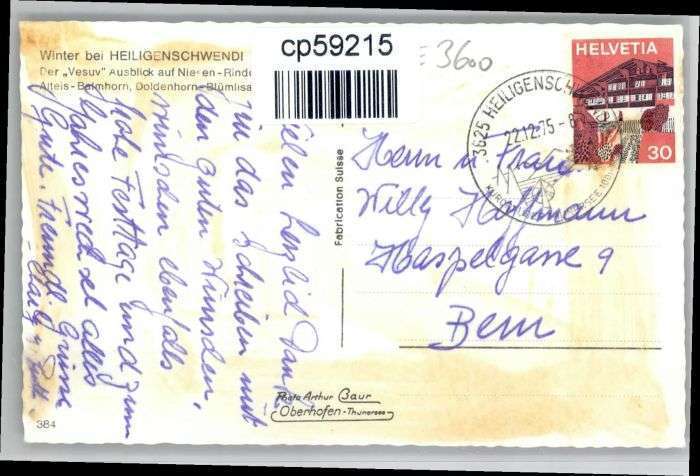 Winter bei HEILIGENSCHWENDI
Der „Vesuv" Ausblick auf Niesen-Rinde
Alteis-Balmhorn, Doldenhorn-Blümlisa
cp59215
3600
HELVETIA
30
3625 HEILIGENSCH
22.12.75-8
Fabrication Suisse
Vielen herzlich Dank
für das Schreiben mit
den guten Wünschen,
wünschen ebenfalls
frohe Festtage und zum
Jahreswechsel alles
Gute. Freundl. Grüsse
Herrn u Frau
Willy Hoffmann
Haspelgasse 9
Bern
Photo Arthur Baur
Oberhofen-Thunersee
384